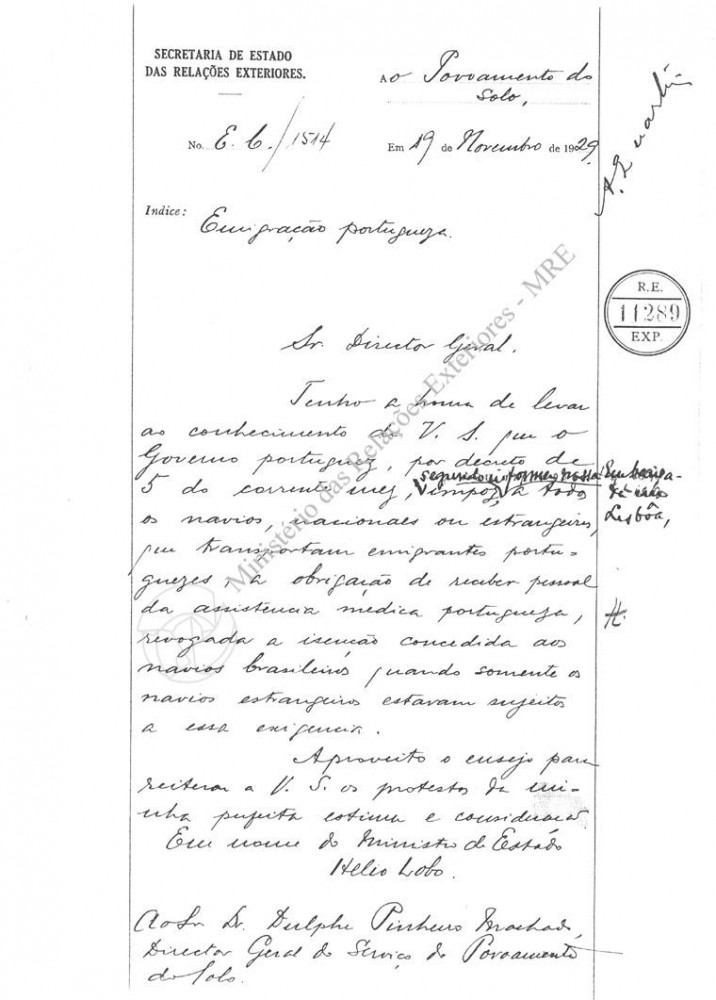 SECRETARIA DE ESTADO
DAS RELAÇÕES EXTERIORES.
AO Povoamento do
Solo,
No. E. C./1514
Em 19 de Novembro de 1929.
Indice:
Emigração portugueza.
R.E.
11289
EXP.
Sr. Director Geral.
Tenho a honra de levar
ao conhecimento de V. S. que o
Governo portuguez, por decreto de
segundo informou nossa Embaixa-
5 do corrente mez, impoz, a todos
da em
Lisbôa,
os navios, nacionaes ou estrangeiros,
que transportam emigrantes portu-
guezes, a obrigação de receber pessoal
da assistencia medica portugueza,
revogada a isenção concedida aos
navios brasileiros, quando somente os
navios estrangeiros estavam sujeitos
a essa exigencia.
Aproveito o ensejo para
reiterar a V. S. os protestos da mi-
nha perfeita estima e consideração
Em nome do Ministro de Estado
Helio Lobo.
Ao Sr. Dr. Dulphe Pinheiro Machado,
Director Geral do Serviço de Povoamento
do Solo.
Ministério das Relações Exteriores - MRE